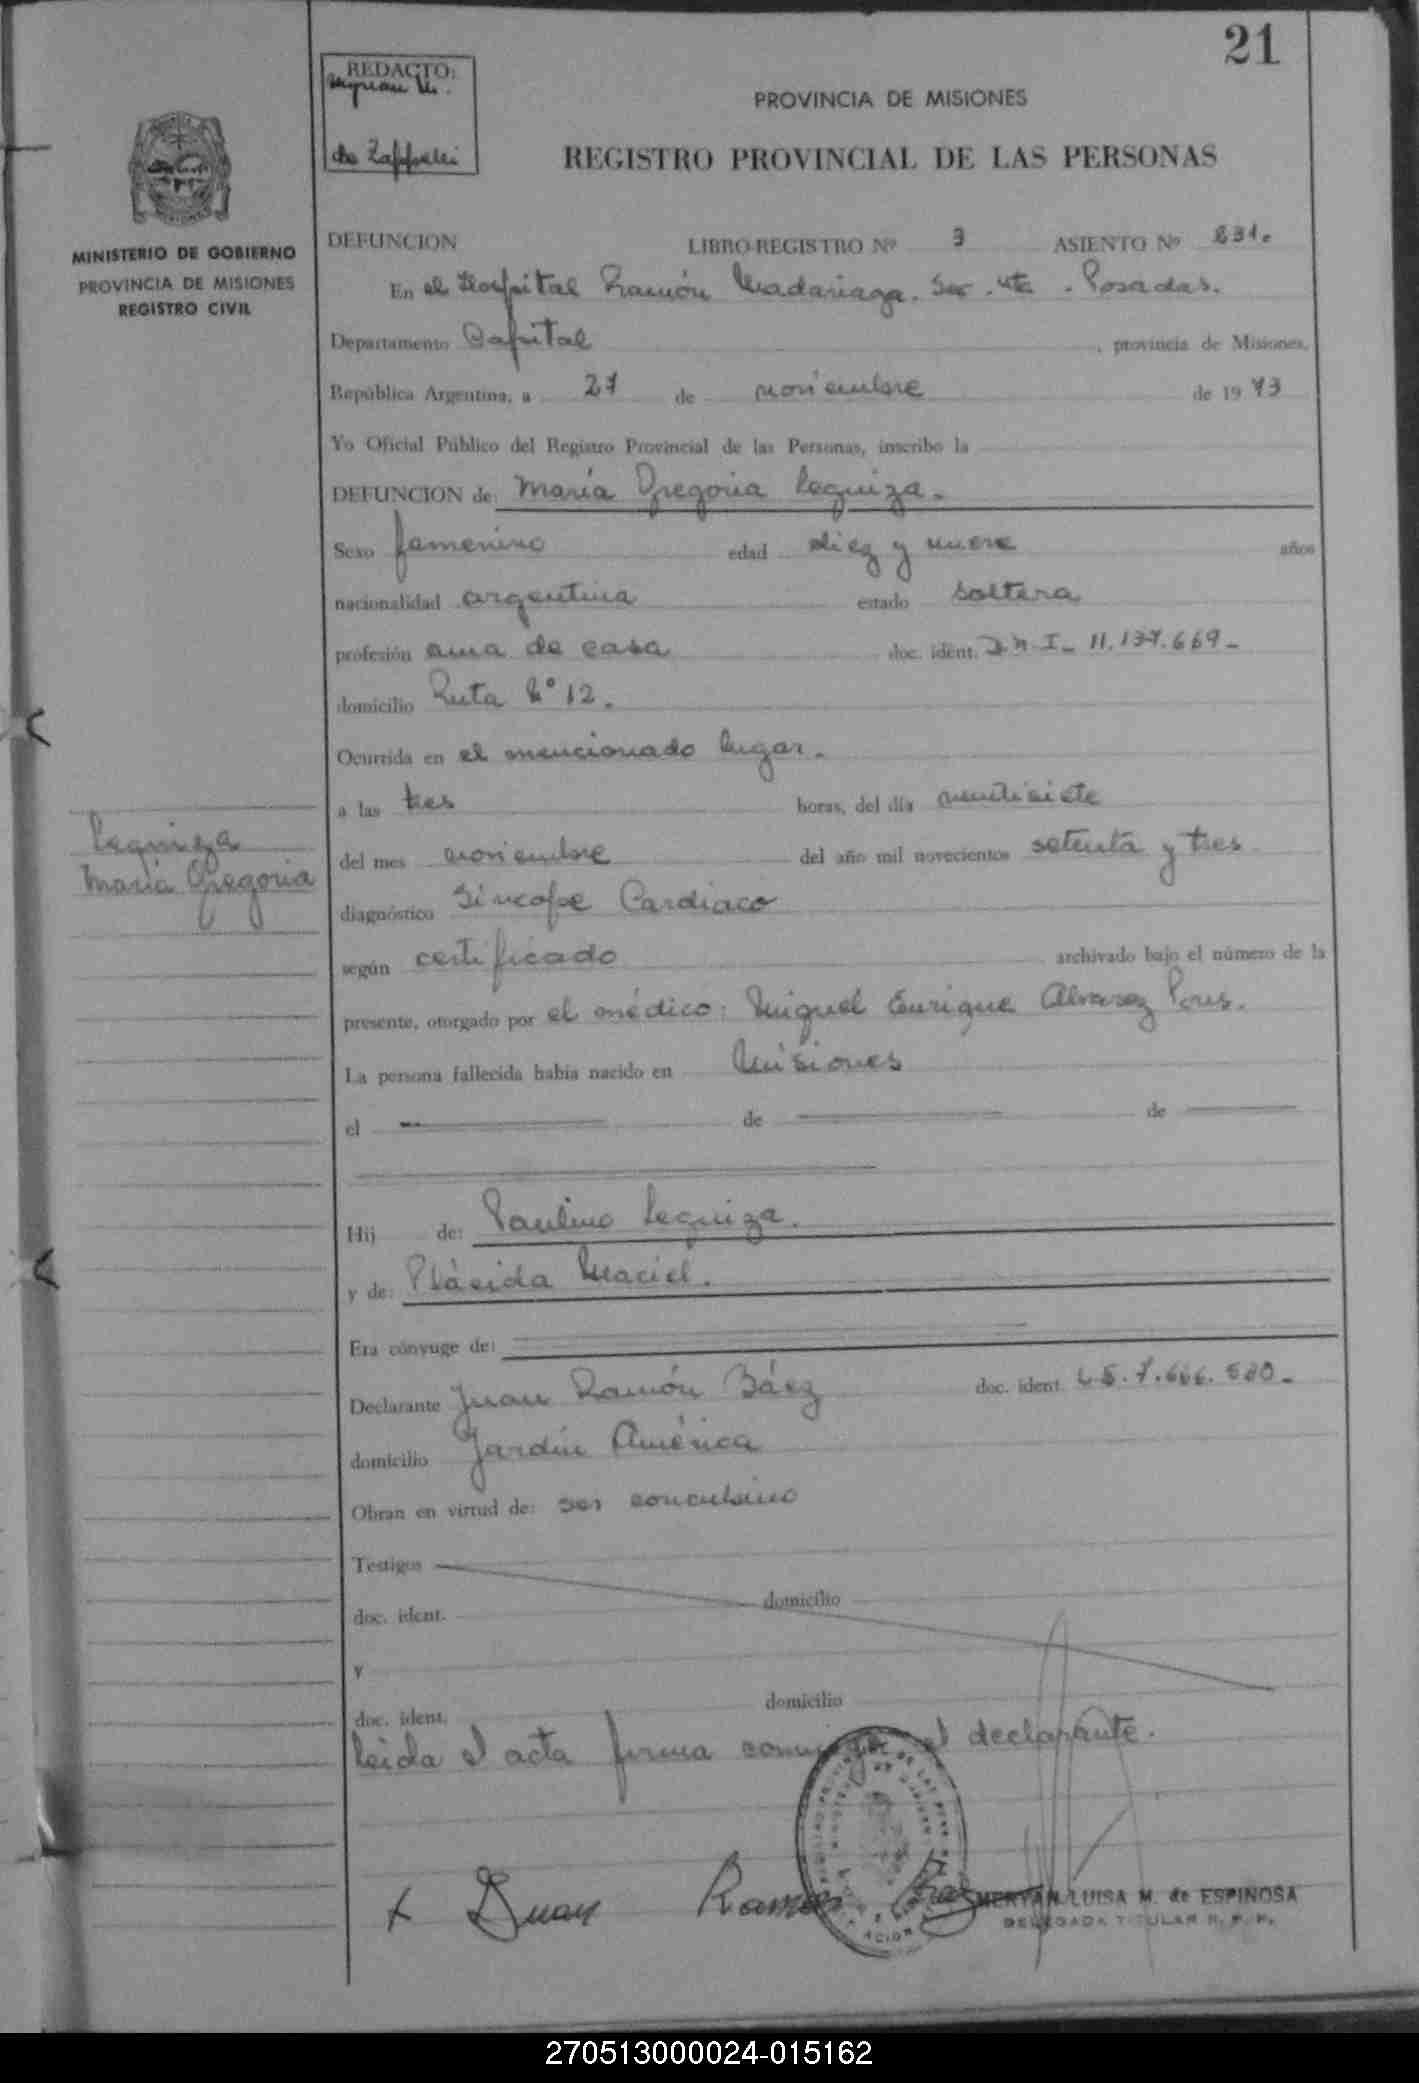 21
REDACTO:
de Zappelli
PROVINCIA DE MISIONES
REGISTRO PROVINCIAL DE LAS PERSONAS
MINISTERIO DE GOBIERNO
PROVINCIA DE MISIONES
REGISTRO CIVIL
DEFUNCION LIBRO-REGISTRO Nº 3 ASIENTO Nº 831.
En el Hospital Ramón Madariaga. Sec. 4ta. Posadas.
Departamento Capital, provincia de Misiones,
República Argentina, a 27 de noviembre de 1973
Yo Oficial Público del Registro Provincial de las Personas, inscribo la
DEFUNCION de: María Gregoria Leguiza.
Sexo femenino edad diez y nueve años
nacionalidad argentina estado soltera
profesión ama de casa doc. ident. D.N.I- 11.137.669-
domicilio Ruta Nº 12.
Ocurrida en el mencionado lugar.
a las tres horas, del día veintisiete
del mes noviembre del año mil novecientos setenta y tres
Leguiza
María Gregoria
diagnóstico Síncope Cardiaco
según certificado archivado bajo el número de la
presente, otorgado por el médico: Miguel Enrique Alvarez Pous.
La persona fallecida había nacido en Misiones
el de de
Hij de: Paulino Leguiza.
y de: Plácida Maciel.
Era cónyuge de:
Declarante Juan Ramón Báez doc. ident.
domicilio Jardín América
Obran en virtud de: ser concubino
Testigos
doc. ident. domicilio
y
doc. ident. domicilio
leida el acta firma conmigo el declarante.
Juan Ramon Baez
MERYAN LUISA M. de ESPINOSA
DELEGADA TITULAR R. P. P.
270513000024-015162